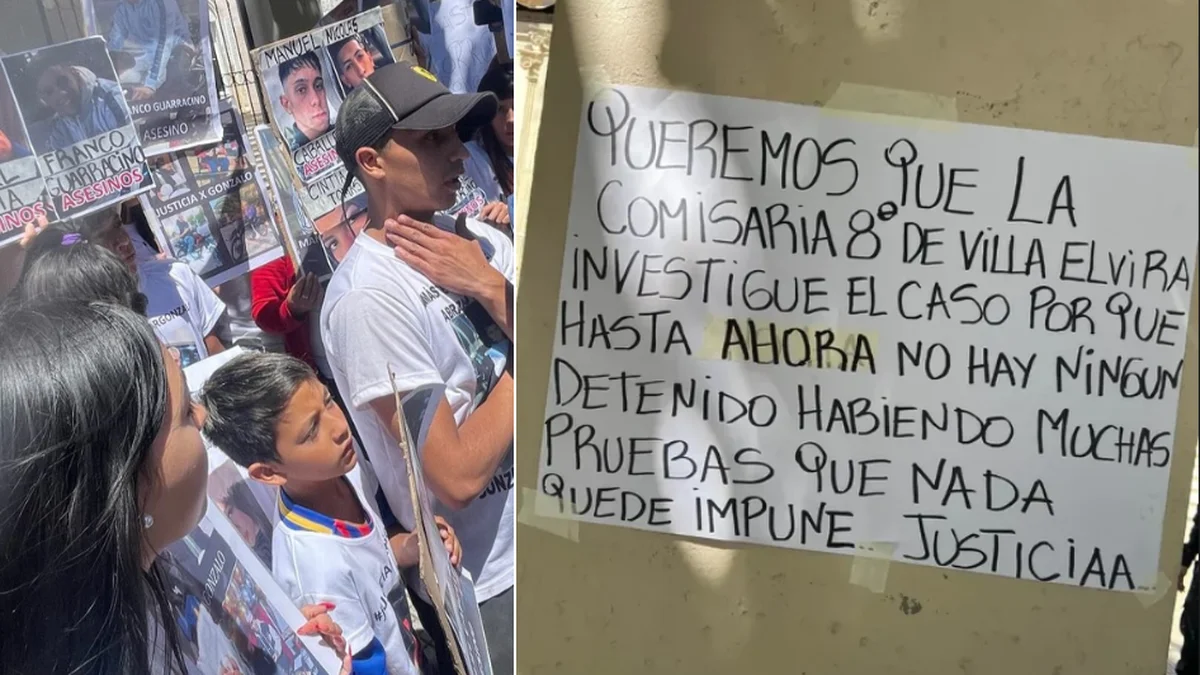 MANUEL NICOLAS
FRANCO
GUARRACINO
ASESINOS
FRANCO GUARRACINO
ASESINO
JUSTICIA X GONZALO
GONZALO
QUEREMOS QUE LA
COMISARIA 8° DE VILLA ELVIRA
INVESTIGUE EL CASO POR QUE
HASTA AHORA NO HAY NINGUN
DETENIDO HABIENDO MUCHAS
PRUEBAS QUE NADA
QUEDE IMPUNE.. JUSTICIAA...